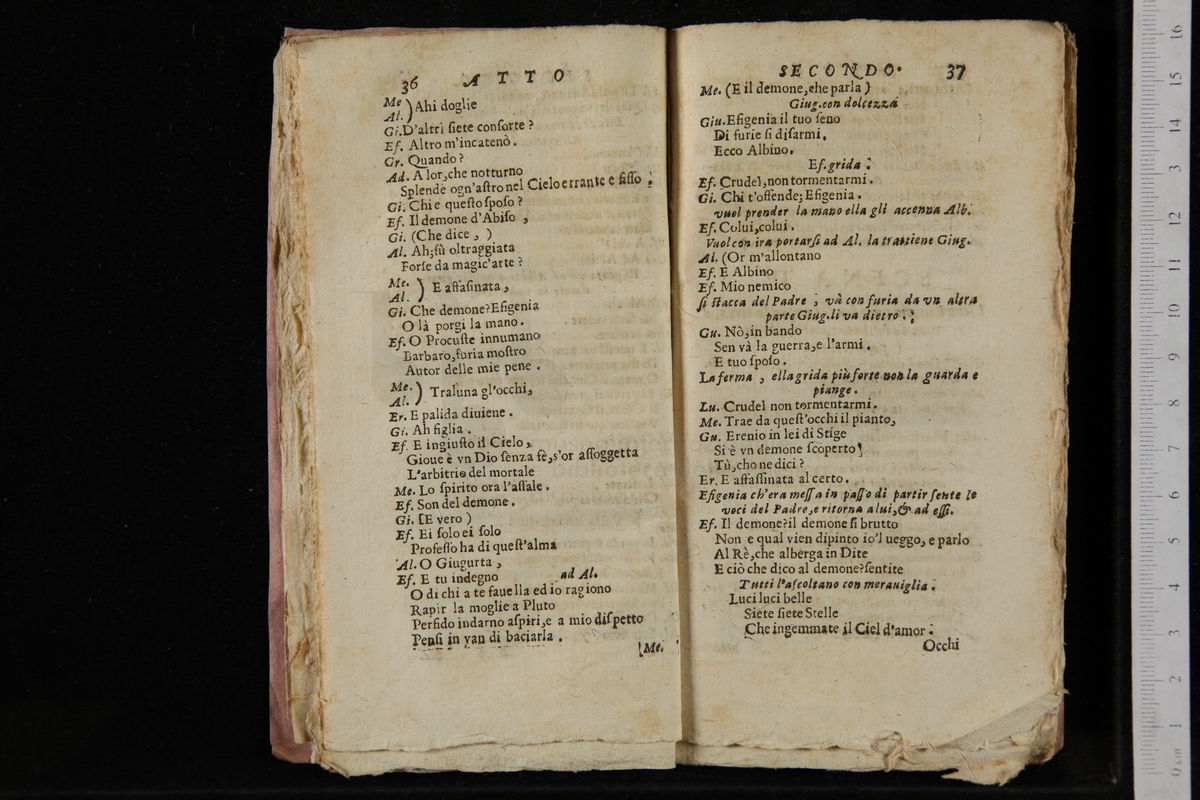 36 ATTO
Me
Al. ) Ahi doglie
Gi. D'altri ſiete conſorte ?
Ef. Altro m'incatenò .
Gr. Quando ?
Ad. A lor, che notturno
Splendè ogn'aſtro nel Cielo errante e fiſſo ;
Gi. Chi e queſto ſpoſo ?
Ef. Il demone d'Abiſo ,
Gi. (Che dice , )
Al. Ah; fù oltraggiata
Forſe da magic'arte ?
Me.
Al. ) E aſſaſinata ,
Gi. Che demone? Efigenia
O là porgi la mano .
Ef. O Procuſte innumano
Barbaro, furia moſtro
Autor delle mie pene .
Me.
Al. ) Traluna gl'occhi,
Er. E palida diuiene .
Gi. Ah figlia .
Ef. E ingiuſto il Cielo,
Gioue è vn Dio ſenza fè, s'or aſſoggetta
L'arbitrio del mortale
Me. Lo ſpirito ora l'aſſale .
Ef. Son del demone .
Gi. [E vero )
Ef. Ei ſolo ei ſolo
Profeſſo ha di queſt'alma
Al. O Giugurta ,
Ef. E tu indegno ad Al.
O di chi a te fauella ed io ragiono
Rapir la moglie a Pluto
Perfido indarno aſpiri, e a mio diſpetto
Penſi in van di baciarla .
[Me.
SECONDO. 37
Me. (E il demone, che parla )
Giug. con dolcezza
Giu. Efigenia il tuo ſeno
Di furie ſi diſarmi,
Ecco Albino.
Ef. grida :
Ef. Crudel, non tormentarmi .
Gi. Chi t'offende; Efigenia .
vuol prender la mano ella gli accenna Alb.
Ef. Colui, colui .
Vuol con ira portarſi ad Al. la trattiene Giug.
Al. (Or m'allontano
Ef. E Albino
Ef. Mio nemico
ſi ſtacca del Padre ; và con furia da vn altra
parte Giug. li va dietro . :
Gu. Nò, in bando
Sen và la guerra, e l'armi .
E tuo ſpoſo .
La ferma , ella grida più forte non la guarda e
piange .
Lu. Crudel non tormentarmi .
Me. Trae da queſt'occhi il pianto,
Gu. Erenio in lei di Stige
Si è vn demone ſcoperto
Tù, cho ne dici ?
Er. E aſſaſſinata al certo .
Efigenia ch'era meſſa in paſſo di partir ſente le
voci del Padre, e ritorna a lui, & ad eſſi.
Ef. Il demone? il demone ſi brutto
Non e qual vien dipinto io'l ueggo, e parlo
Al Rè, che alberga in Dite
E ciò che dico al demone? ſentite
Tutti l'aſcoltano con merauiglia :
Luci luci belle
Siete ſiete Stelle
Che ingemmate il Ciel d'amor :
Occhi